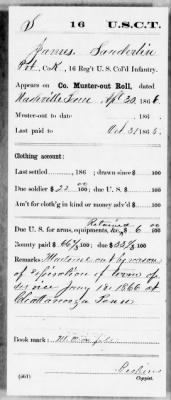 S 16 U.S.C.T.
James Sanderlin
Pvt., Co. K, 16 Reg't U. S. Col'd Infantry.
Appears on Co. Muster-out Roll, dated
Nashville Tenn Apl 30, 1866.
Muster-out to date , 186 .
Last paid to Oct 31, 1865.
Clothing account:
Last settled , 186 ; drawn since $ 100
Due soldier $ 22 00/100; due U. S. $ 100
Am't for cloth'g in kind or money adv'd $ 100
Retained
Due U. S. for arms, equipments, &c., $ 6 00/100
Bounty paid $ 66 2/3 100; due $ 33 1/3 100
Remarks: Mustered out by reason
of expiration of term of
service Jany 18, 1866 at
Chattanooga Tenn
Book mark:
(361) Copyist.